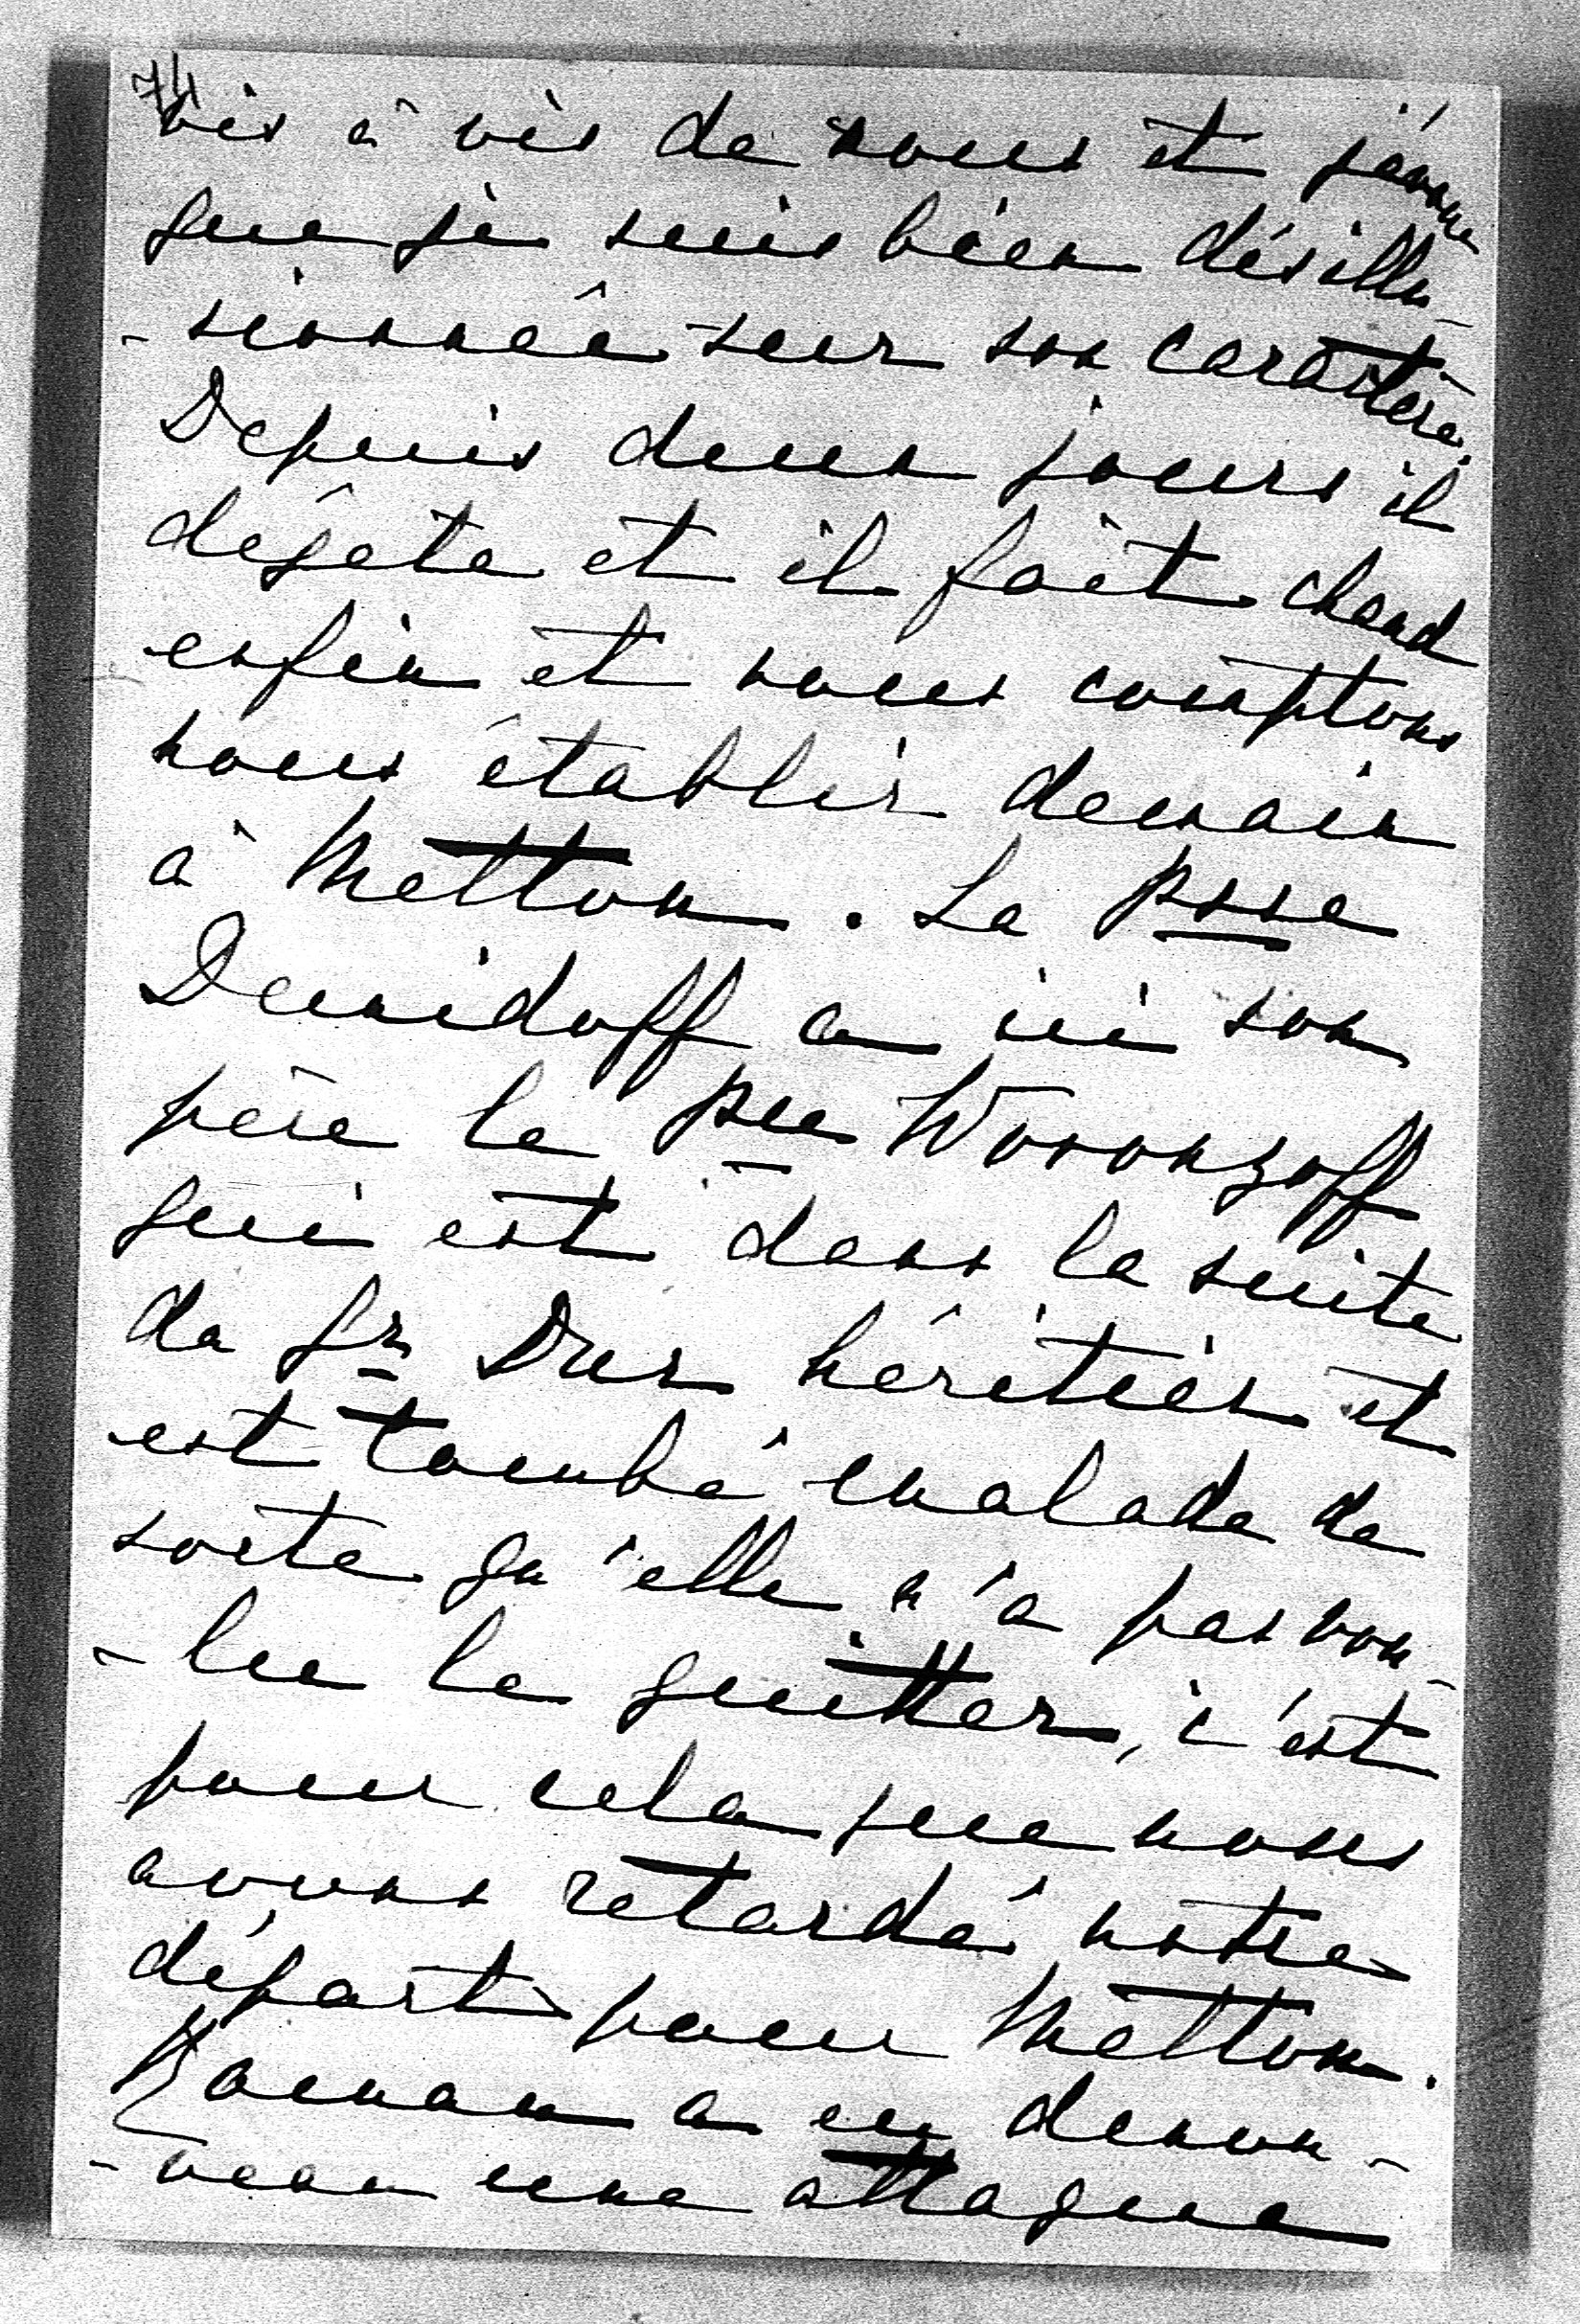 74
vis à vis de nous et j'avoue
que je suis bien désillu-
-sionnée sur son caractère.
Depuis deux jours il
dégèle et il fait chaud
enfin et nous comptons
nous établir demain
à Metton. La psse
Demidoff a ici son
père le pce Woronzoff
qui est dans la suite
du gr Duc héritier et
est tombé malade de
sorte qu'elle n'a pas vou-
-lu le quitter, c'est
pour cela que nous
avons retardé notre
départ pour Metton.
a eu de nou-
-veau une attaque